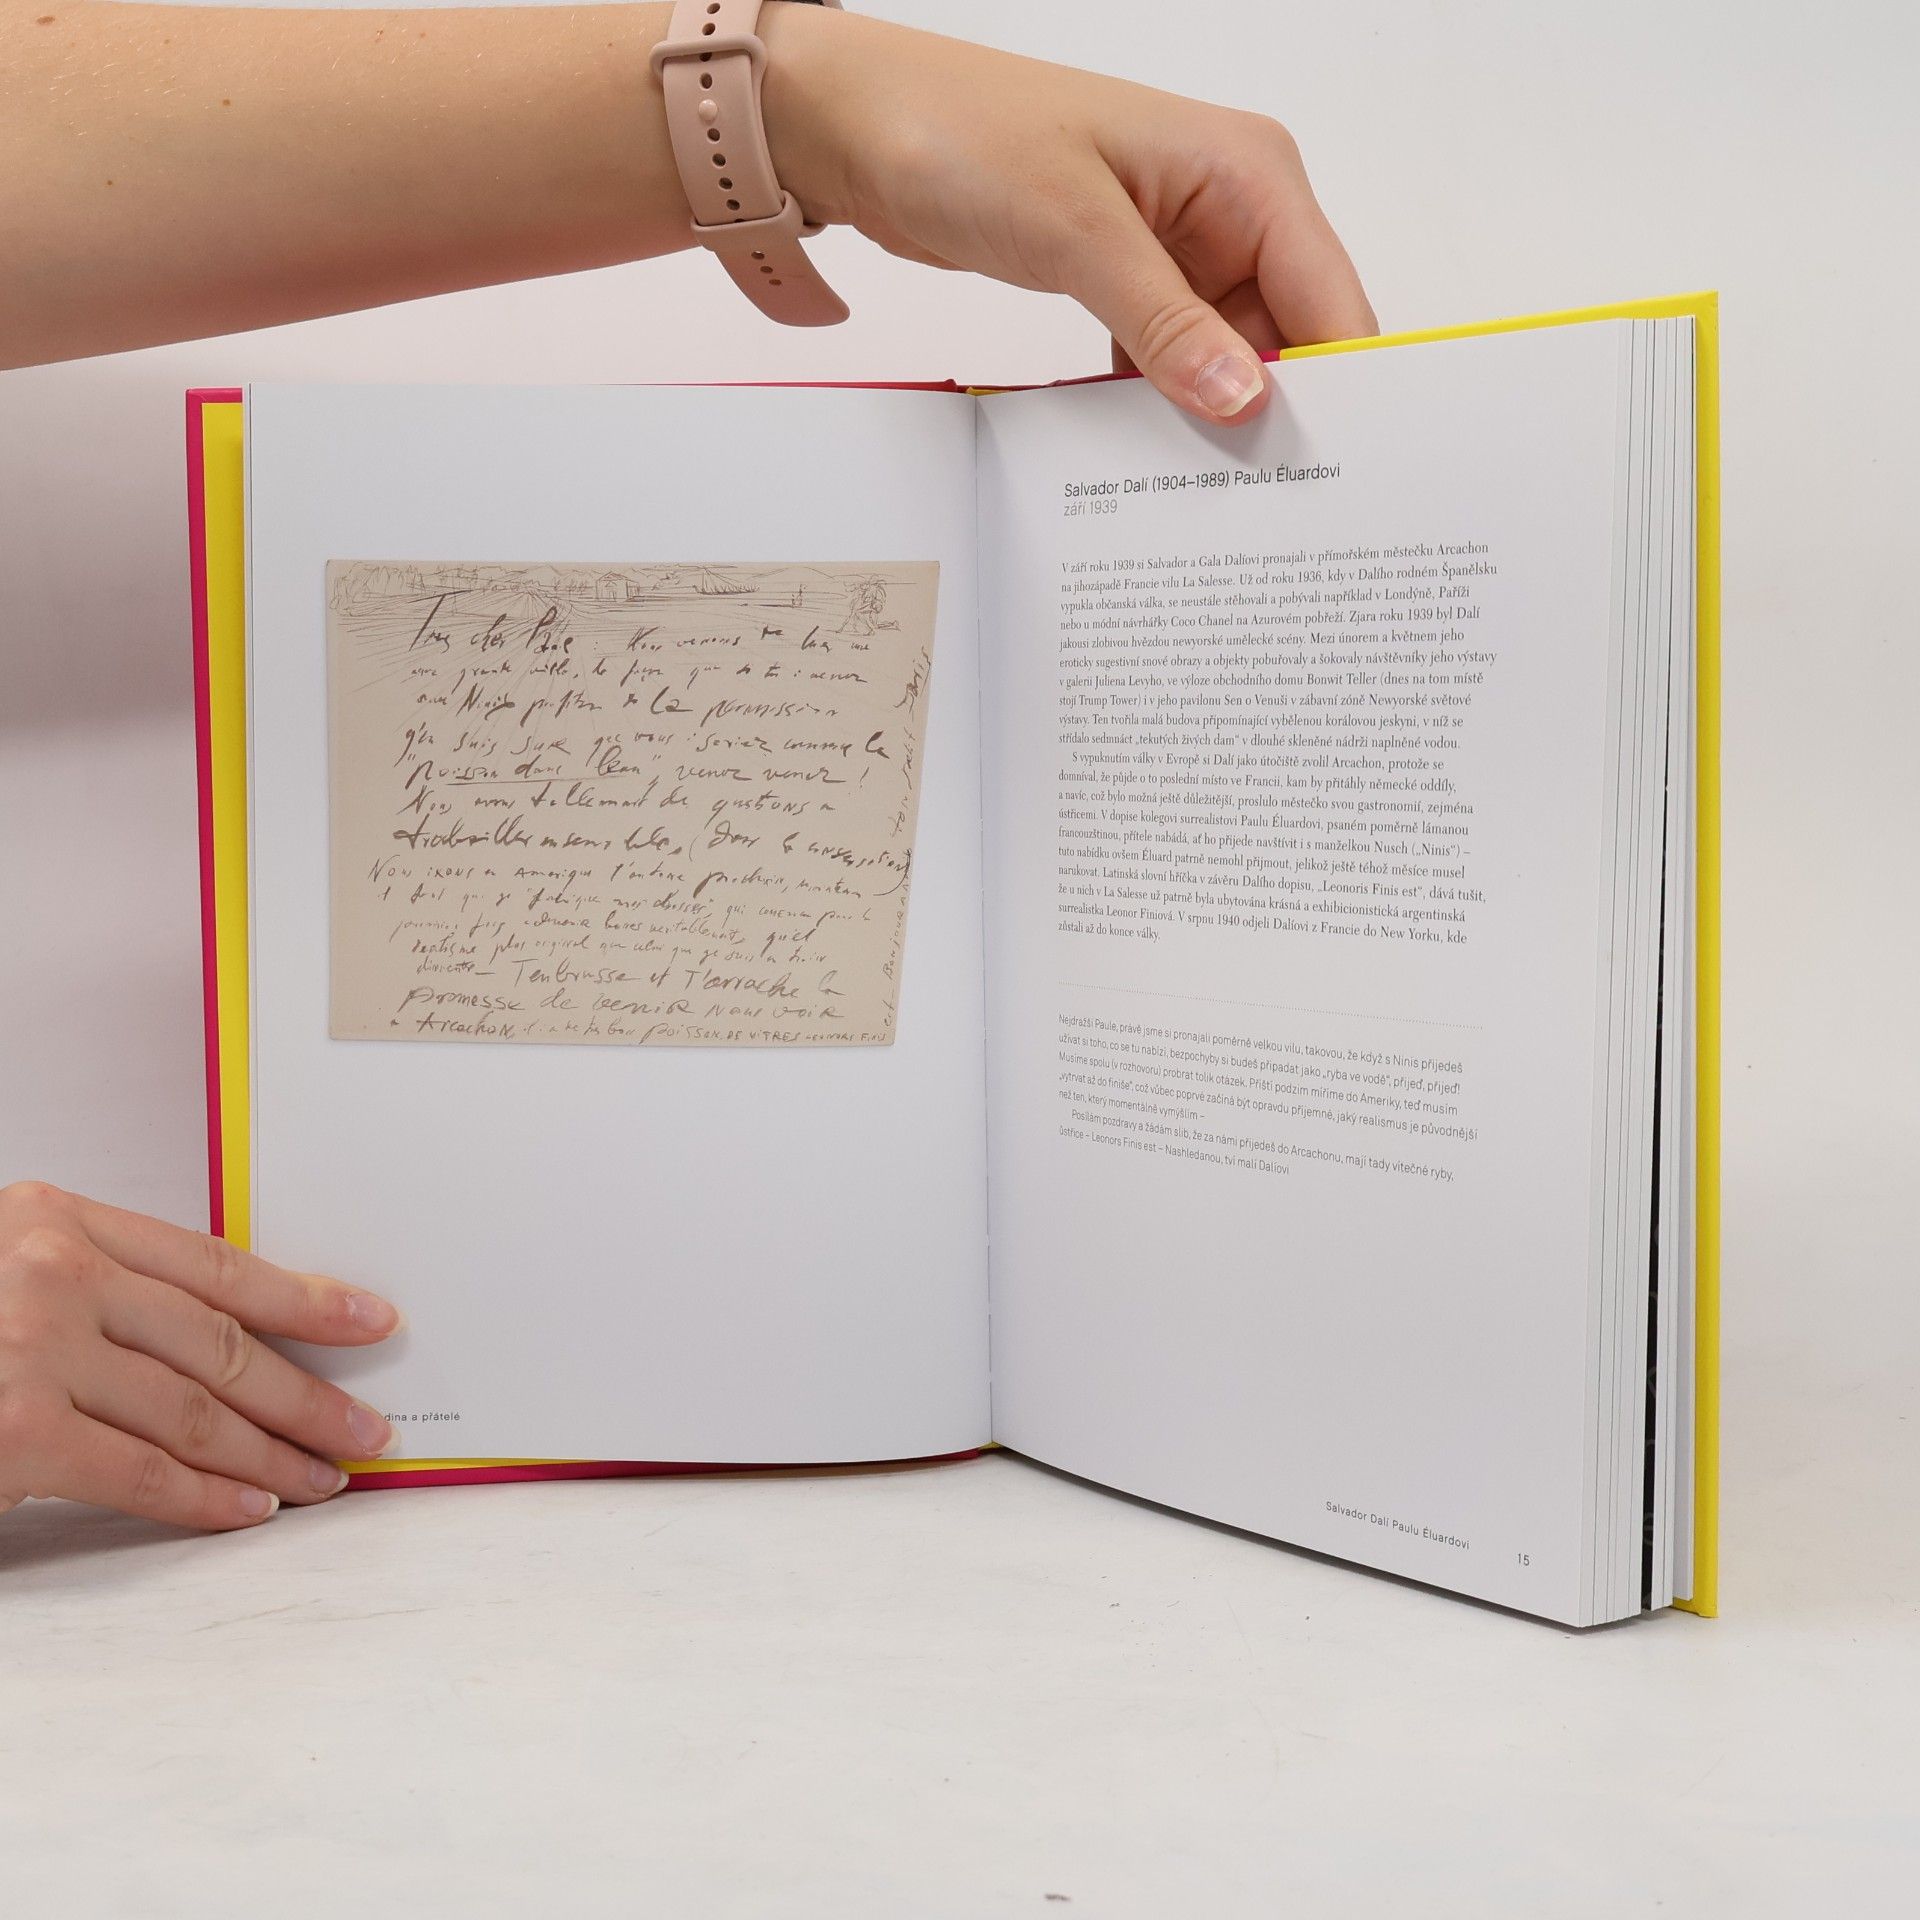 Tres cher Paul : Nous venons de louer une
une grande ville, de façon que si tu venez
avec Ninis profiter de la permission
j'en suis sure que vous seriez comme le
"poisson dans l'eau", venez venez !
Nous avons tellement de questions a
trabailler ensemble, (dans la conversation)
Nous irons en Amerique l'autone prochain,
il faut que je qui comence pour la
premier fois
realisme plus original que celui que je suis en train
T'enbrasse et T'arrache la
promesse de venir nous voir
a Arcachon, il i a de tres bon poisson, DE VITRES LEONORS FINIS
est – Bonjour TON PETIT DALIS
dina a přátelé
Salvador Dalí (1904–1989) Paulu Éluardovi
září 1939
V září roku 1939 si Salvador a Gala Dalíovi pronajali v přímořském městečku Arcachon
na jihozápadě Francie vilu La Salesse. Už od roku 1936, kdy v Dalího rodném Španělsku
vypukla občanská válka, se neustále stěhovali a pobývali například v Londýně, Paříži
nebo u módní návrhářky Coco Chanel na Azurovém pobřeží. Zjara roku 1939 byl Dalí
jakousi zlobivou hvězdou newyorské umělecké scény. Mezi únorem a květnem jeho
eroticky sugestivní snové obrazy a objekty pobuřovaly a šokovaly návštěvníky jeho výstavy
v galerii Juliena Levyho, ve výloze obchodního domu Bonwit Teller (dnes na tom místě
stojí Trump Tower) i v jeho pavilonu Sen o Venuši v zábavní zóně Newyorské světové
výstavy. Ten tvořila malá budova připomínající vybělenou korálovou jeskyni, v níž se
střídalo sedmnáct „tekutých živých dam“ v dlouhé skleněné nádrži naplněné vodou.
S vypuknutím války v Evropě si Dalí jako útočiště zvolil Arcachon, protože se
domníval, že půjde o to poslední místo ve Francii, kam by přitáhly německé oddíly,
a navíc, což bylo možná ještě důležitější, proslulo městečko svou gastronomií, zejména
ústřicemi. V dopise kolegovi surrealistovi Paulu Éluardovi, psaném poměrně lámanou
francouzštinou, přítele nabádá, ať ho přijede navštívit i s manželkou Nusch („Ninis“) –
tuto nabídku ovšem Éluard patrně nemohl přijmout, jelikož ještě téhož měsíce musel
narukovat. Latinská slovní hříčka v závěru Dalího dopisu, „Leonoris Finis est“, dává tušit,
že u nich v La Salesse už patrně byla ubytována krásná a exhibicionistická argentinská
surrealistka Leonor Finiová. V srpnu 1940 odjeli Dalíovi z Francie do New Yorku, kde
zůstali až do konce války.
Nejdražší Paule, právě jsme si pronajali poměrně velkou vilu, takovou, že když s Ninis přijedeš
užívat si toho, co se tu nabízí, bezpochyby si budeš připadat jako „ryba ve vodě“, přijeď, přijeď!
Musíme spolu (v rozhovoru) probrat tolik otázek. Příští podzim míříme do Ameriky, teď musím
„vytrvat až do finiše“, což vůbec poprvé začíná být opravdu příjemné, jaký realismus je původnější
než ten, který momentálně vymýšlím –
Posílám pozdravy a žádám slib, že za námi přijedeš do Arcachonu, mají tady vitečné ryby,
ůstřice – Leonors Finis est – Nashledanou, tvi malí Dalíovi
Salvador Dalí Paulu Éluardovi
15